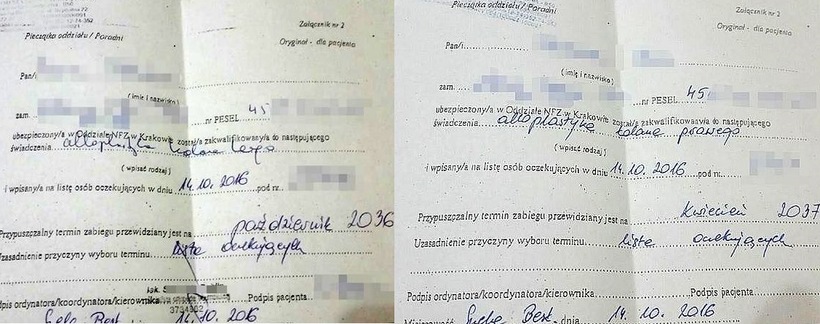 Załącznik nr 2
Pieczątka oddziału / Poradni
Oryginał - dla pacjenta
Pan/i
( imię i nazwisko)
zam.
nr PESEL 45
ubezpieczony/a w Oddziale NFZ w Krakowie został/a zakwalifikowany/a do następującego
świadczenia. alloplastyka kolana lewego
( wpisać rodzaj )
i wpisany/a na listę osób oczekujących w dniu 14.10.2016 pod nr.
Przypuszczalny termin zabiegu przewidziany jest na październik 2036
Uzasadnienie przyczyny wyboru terminu. lista oczekujących
podpis ordynatora/koordynatora/kierownika
Podpis pacjenta
14.10.2016
Załącznik nr 2
Pieczątka oddziału / Poradni
Oryginał - dla pacjenta
Pan/i
( imię i nazwisko)
zam.
nr PESEL 45
ubezpieczony/a w Oddziale NFZ w Krakowie został/a zakwalifikowany/a do następującego
świadczenia. alloplastyka kolana prawego
( wpisać rodzaj )
i wpisany/a na listę osób oczekujących w dniu 14.10.2016 pod nr.
Przypuszczalny termin zabiegu przewidziany jest na kwiecień 2037
Uzasadnienie przyczyny wyboru terminu. lista oczekujących
Podpis ordynatora/koordynatora/kierownika
Podpis pacjenta
dnia 14.10.2016